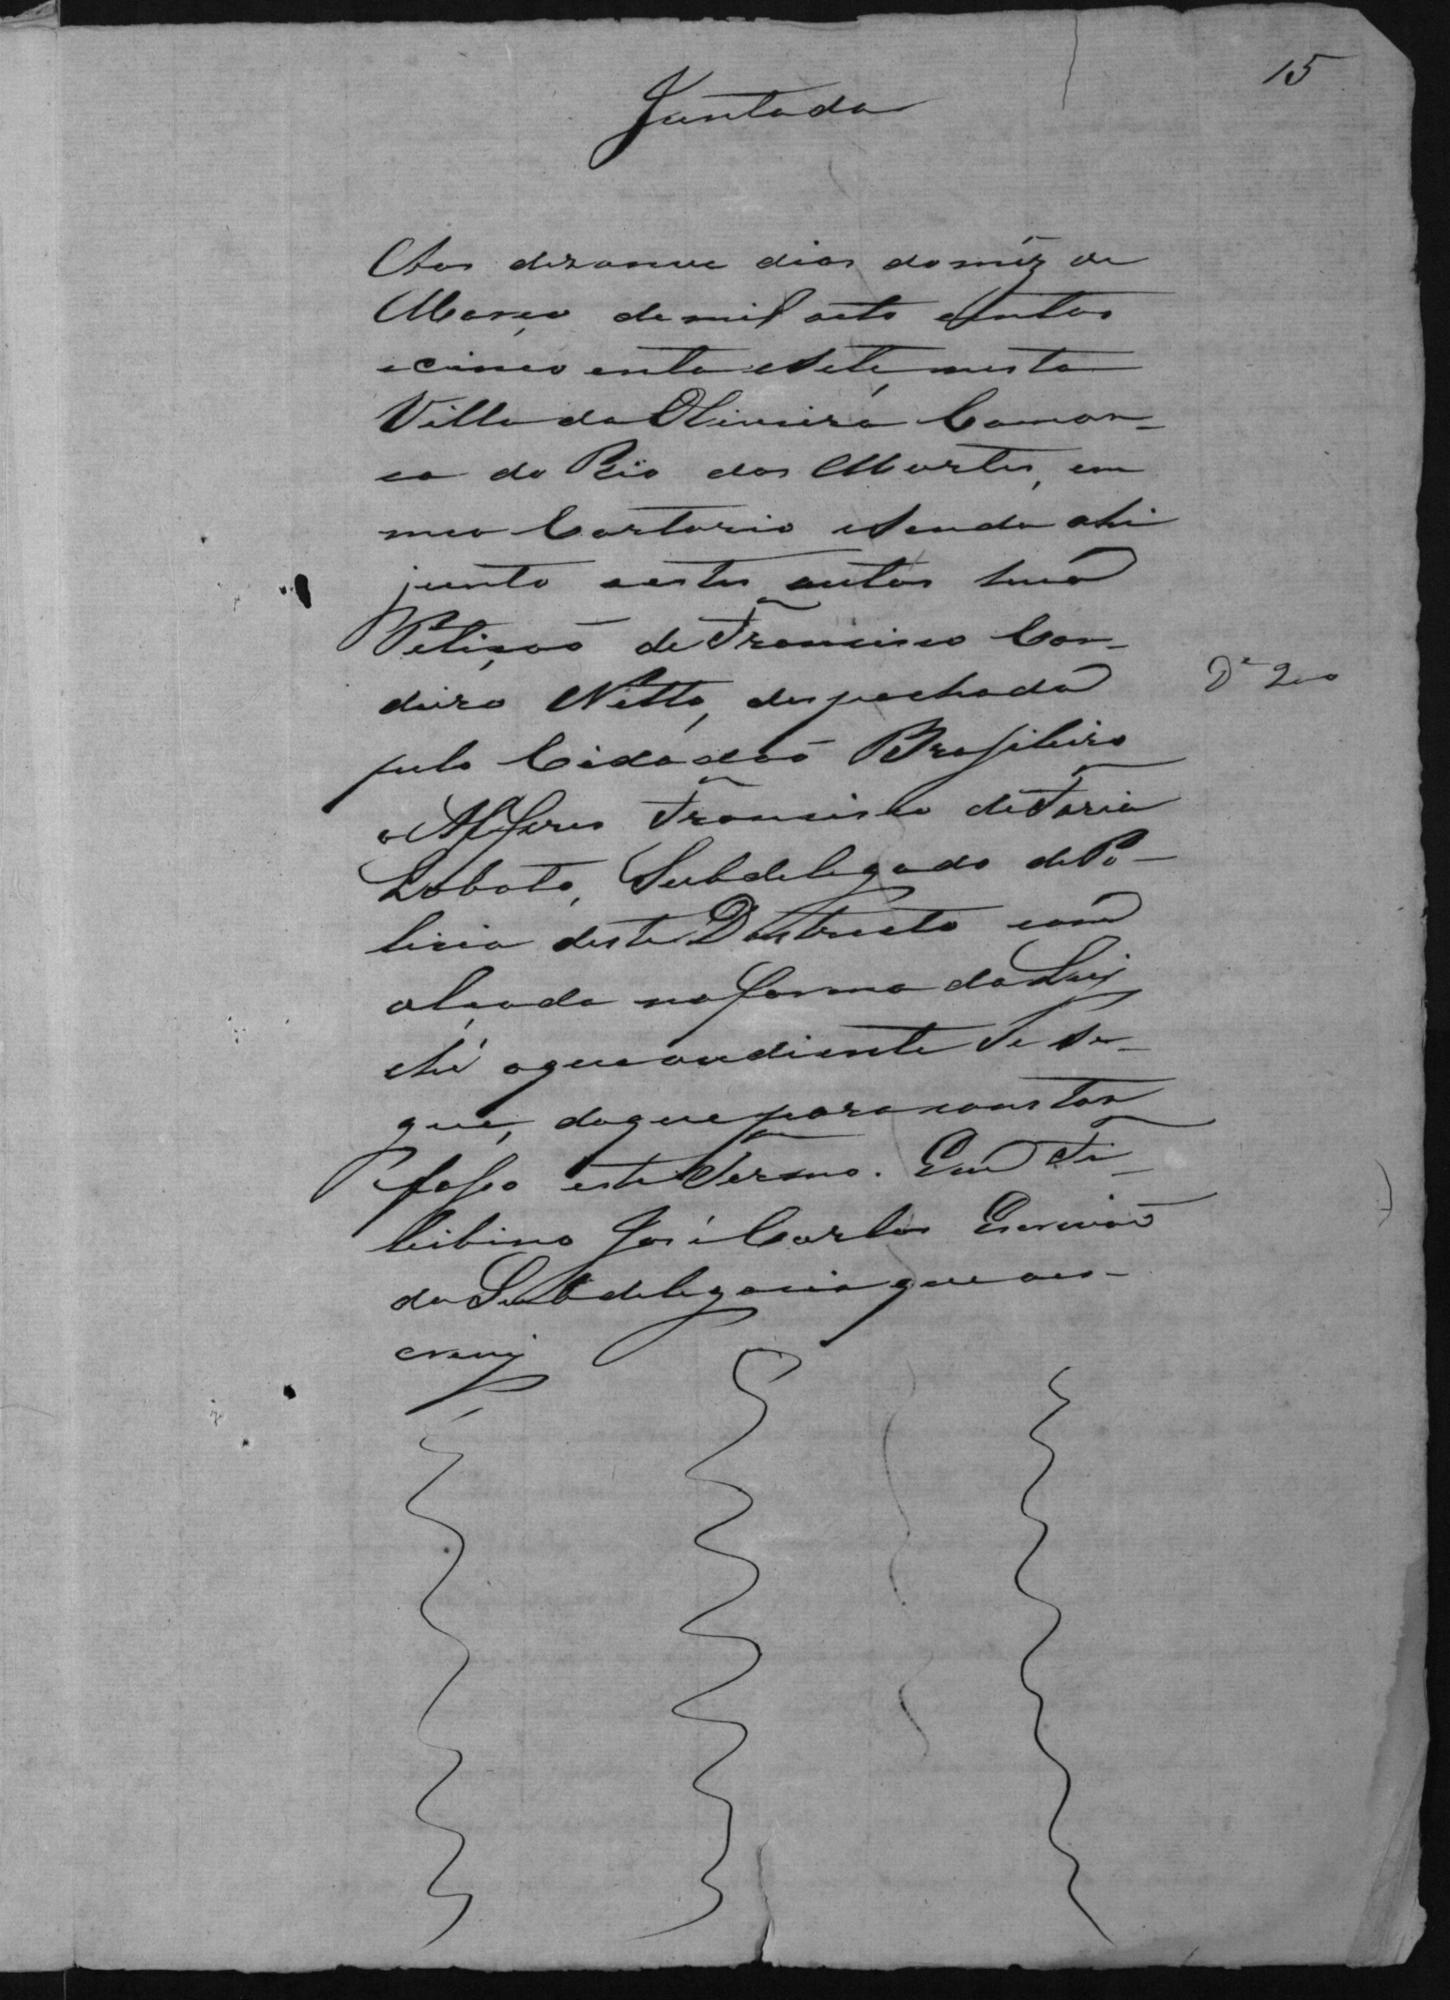 15
Juntada
Aos dezanove dias do mêz de
Março de mil oito centos
e cinco enta e Sete, nesta
Villa da Oliveira Comar-
ca do Rio das Mortes, em
meo Cartorio e Sendo ahi
junto a estes autos huã
Petiçaõ de Francisco Cor-
deiro Netto, despachada
pelo Cidadaõ Brasileiro
o Alferes Francisco de Faria
Lobato, Subdelegado de Po-
licia deste Destricto com
alçada na forma da Ley
ehé o que ao diante Se Se-
gue, do que para constar
fasso este Termo. Eu
libino José Carlos Escrivaõ
da Subdelegacia que o es-
crevy